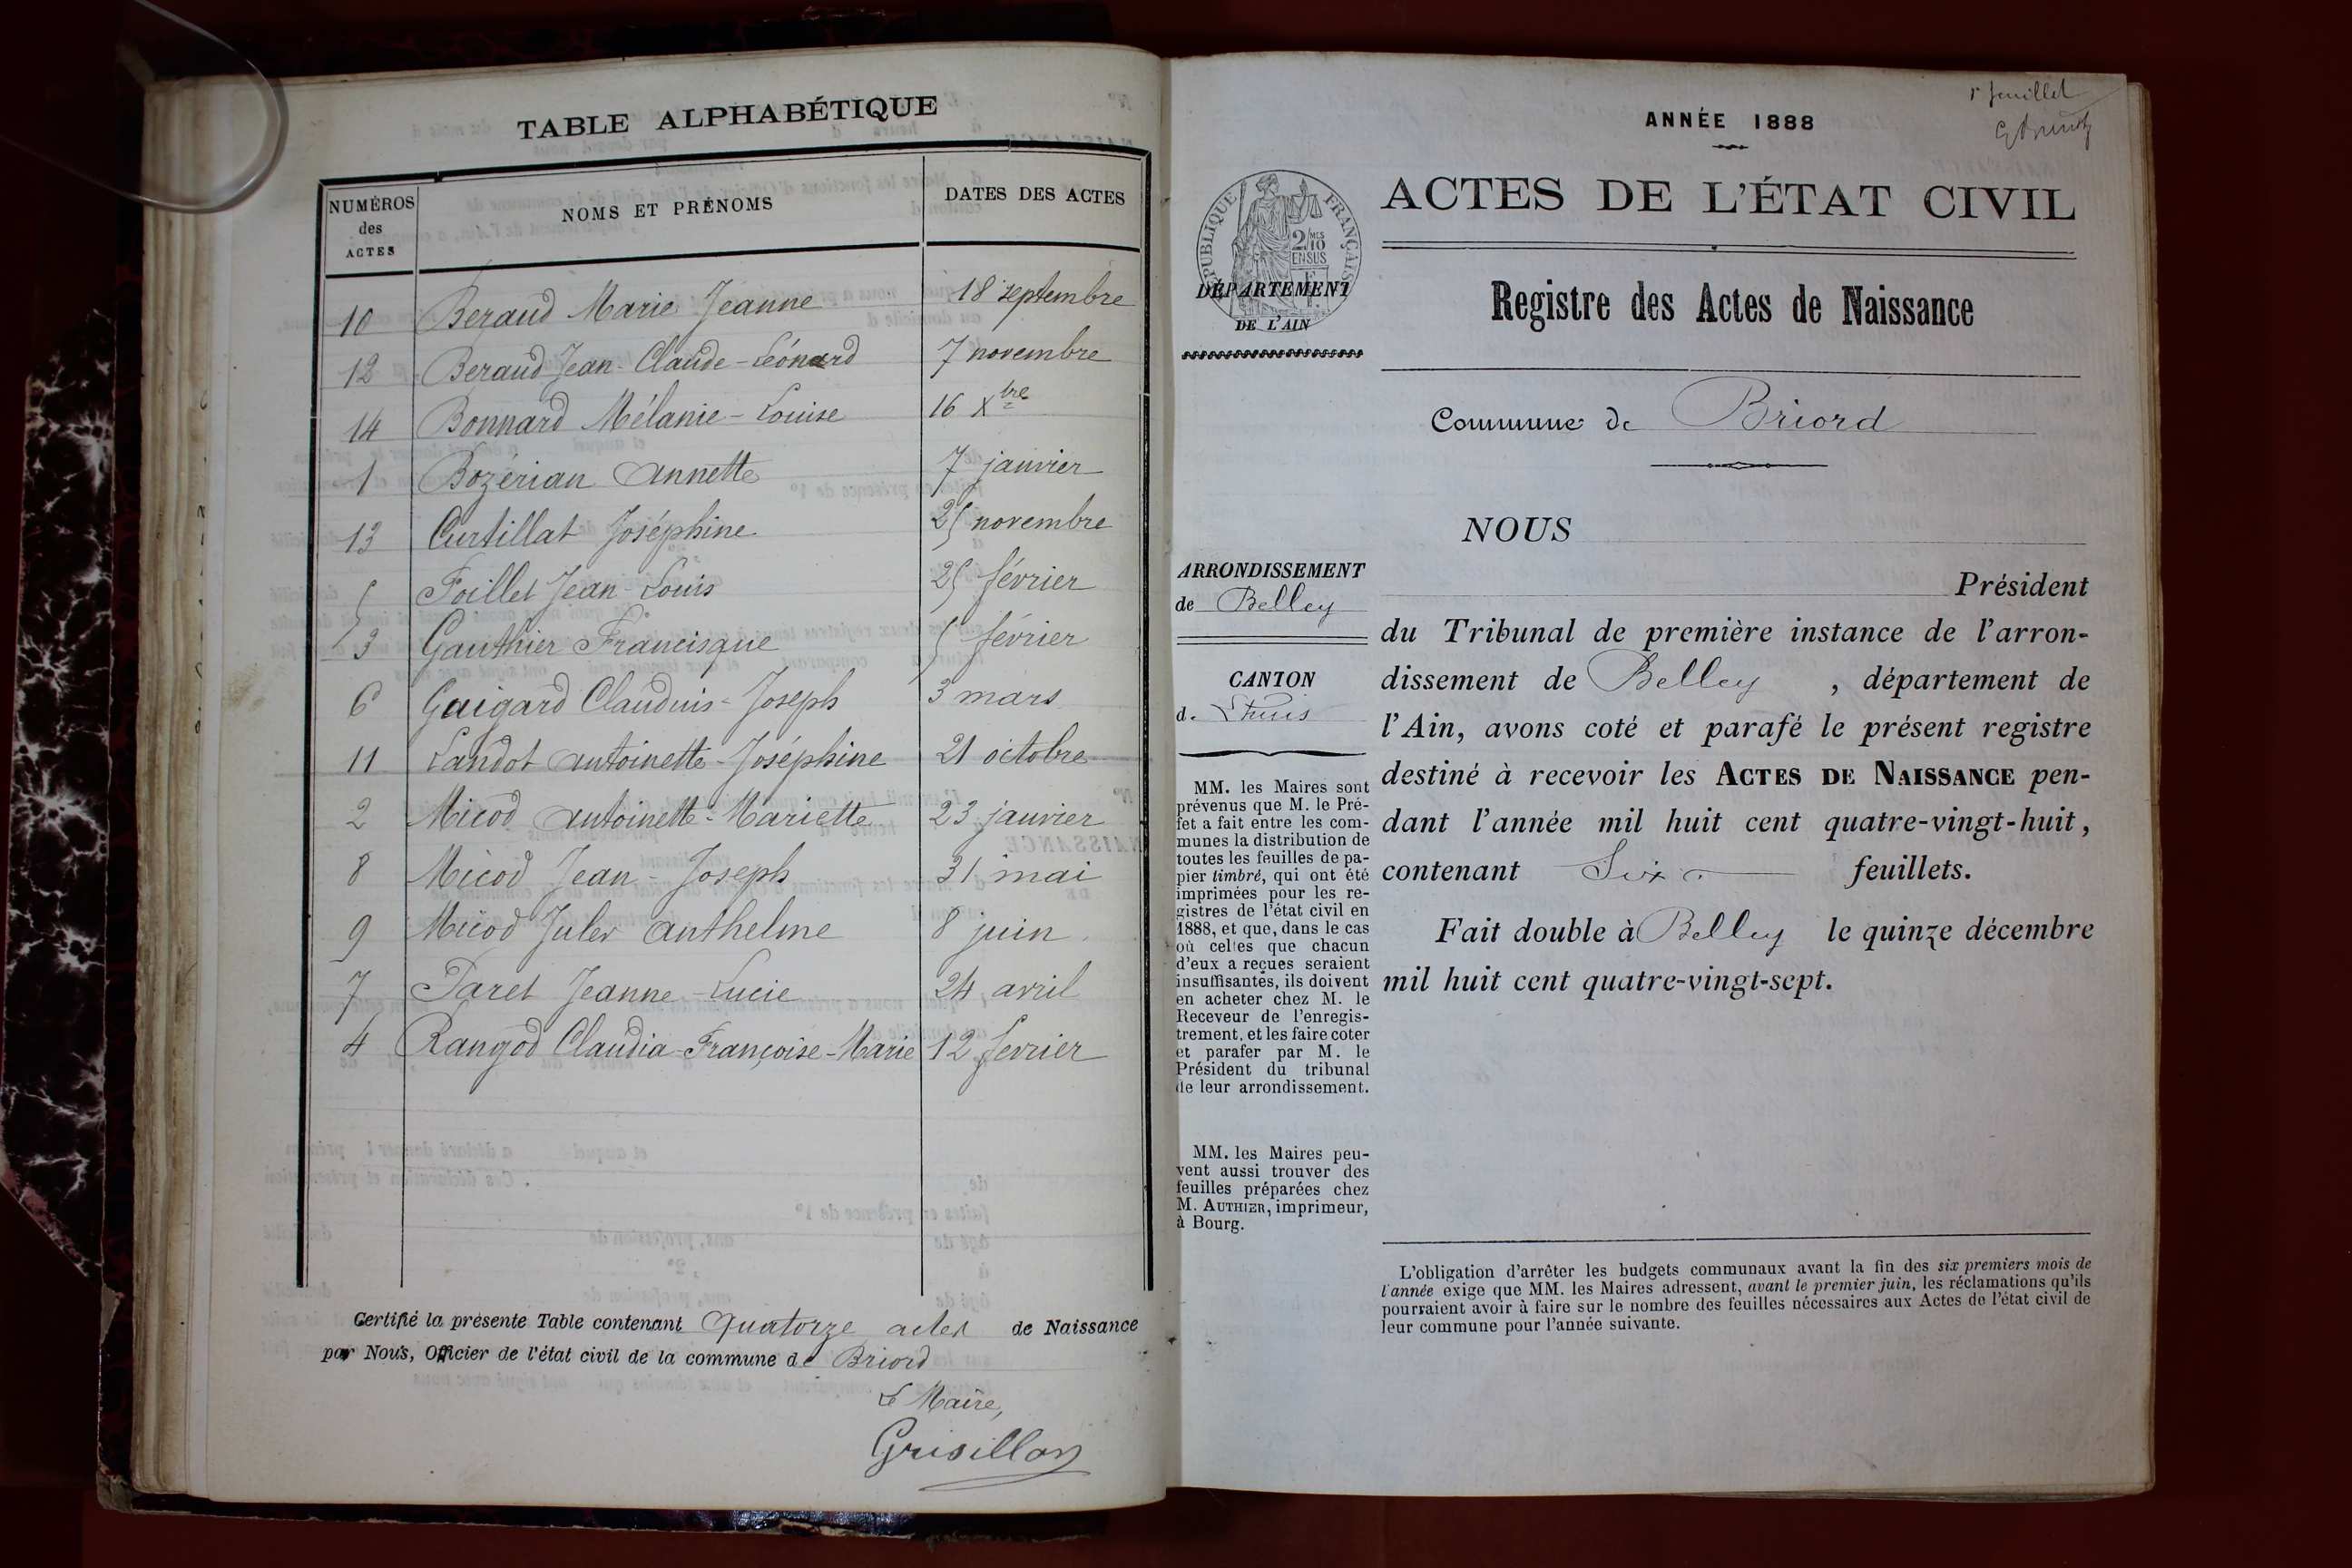 TABLE ALPHABÉTIQUE
NUMÉROS des ACTES NOMS ET PRÉNOMS DATES DES ACTES
10 Beraud Marie Jeanne 18 septembre
12 Beraud Jean-Claude-Léonard 7 novembre
14 Bonnard Mélanie-Louise 16 Xbre
1 Bozérian Annette 7 janvier
13 Curtillat Joséphine 25 novembre
5 Foillet Jean-Louis 25 février
3 Gauthier Francisque 5 février
6 Guigard Claudius-Joseph 3 mars
11 Landot Antoinette-Joséphine 21 octobre
2 Micod Antoinette-Mariette 23 janvier
8 Micod Jean-Joseph 31 mai
9 Micod Jules Anthelme 8 juin
7 Paret Jeanne-Lucie 24 avril
4 Rangod Claudia-Françoise-Marie 12 fevrier
Certifié la présente Table contenant quatorze actes de Naissance
par Nous, Officier de l'état civil de la commune de Briord
Le Maire,
Grisillon
1r feuillet
ANNÉE 1888
RÉPUBLIQUE FRANÇAISE
2/10 MES
EN SUS
DÉPARTEMENT
DE L'AIN
ACTES DE L'ÉTAT CIVIL
Registre des Actes de Naissance
Commune de Briord
ARRONDISSEMENT
de Belley
CANTON
d. Lhuis
MM. les Maires sont
prévenus que M. le Pré-
fet a fait entre les com-
munes la distribution de
toutes les feuilles de pa-
pier timbré, qui ont été
imprimées pour les re-
gistres de l'état civil en
1888, et que, dans le cas
où celles que chacun
d'eux a reçues seraient
insuffisantes, ils doivent
en acheter chez M. le
Receveur de l'enregis-
trement, et les faire coter
et parafer par M. le
Président du tribunal
de leur arrondissement.
MM. les Maires peu-
vent aussi trouver des
feuilles préparées chez
M. AUTHIER, imprimeur,
à Bourg.
NOUS
Président
du Tribunal de première instance de l'arron-
dissement de Belley , département de
l'Ain, avons coté et parafé le présent registre
destiné à recevoir les ACTES DE NAISSANCE pen-
dant l'année mil huit cent quatre-vingt-huit,
contenant Six feuillets.
Fait double à Belley le quinze décembre
mil huit cent quatre-vingt-sept.
L'obligation d'arrêter les budgets communaux avant la fin des six premiers mois de
l'année exige que MM. les Maires adressent, avant le premier juin, les réclamations qu'ils
pourraient avoir à faire sur le nombre des feuilles nécessaires aux Actes de l'état civil de
leur commune pour l'année suivante.